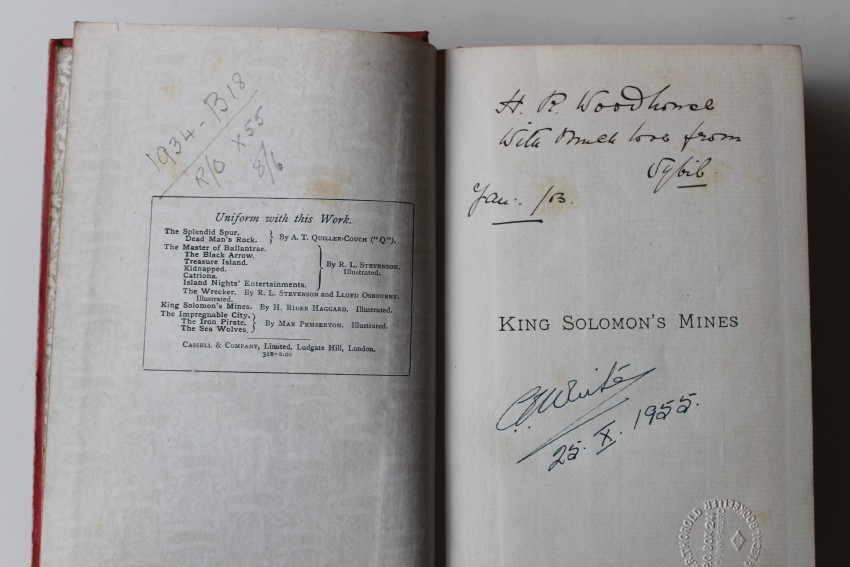 1934 - B18
R/O X55
8/6
Uniform with this Work.
The Splendid Spur.
Dead Man's Rock. } By A. T. Quiller-Couch ("Q").
The Master of Ballantrae.
The Black Arrow.
Treasure Island.
Kidnapped.
Catriona.
Island Nights' Entertainments. } By R. L. Stevenson. Illustrated.
The Wrecker. By R. L. Stevenson and Lloyd Osbourne.
Illustrated.
King Solomon's Mines. By H. Rider Haggard. Illustrated.
The Impregnable City.
The Iron Pirate.
The Sea Wolves. } By Max Pemberton. Illustrated.
Cassell & Company, Limited, Ludgate Hill, London.
31B-2.02
H. R. Woodhouse
With Much love from
Sybil.
Jan. /03.
KING SOLOMON'S MINES
White
25. X. 1955.
BOOKSELLER